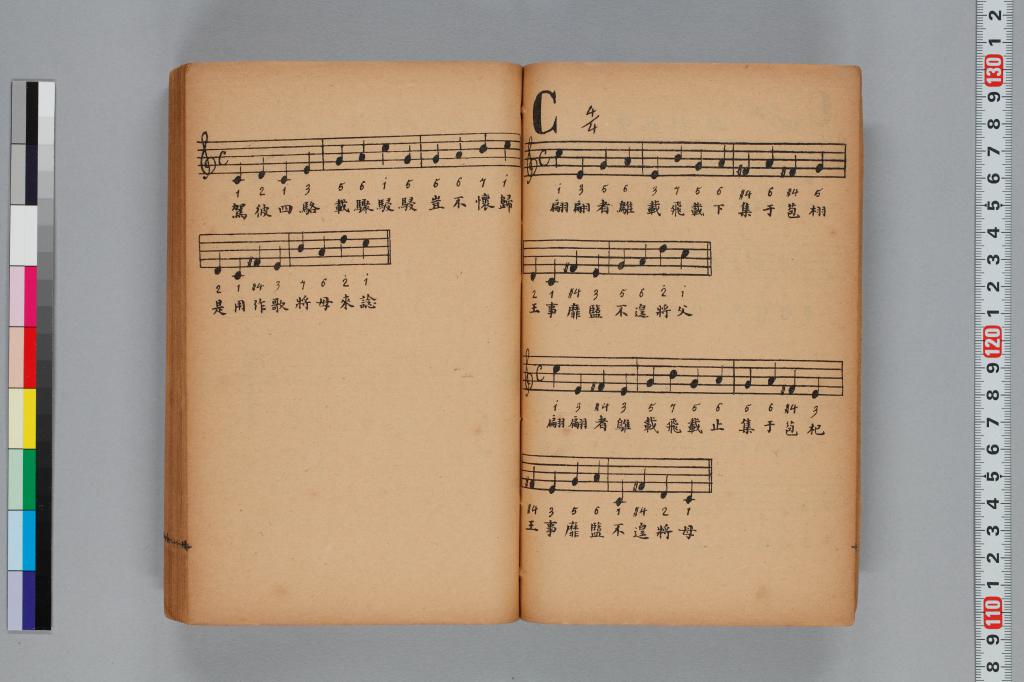 1 2 1 3 5 6 i 5 5 6 7 i
駕彼四駱 載驟駸駸 豈不懷歸
2 1 #4 3 7 6 2 i
是用作歌將母來諗
C 4/4
i 3 5 6 3 7 5 6 #4 6 #4 5
翩翩者鵻 載飛載下 集于苞栩
2 1 #4 3 5 6 2 i
王事靡盬 不遑將父
i 3 #4 3 5 7 5 6 5 6 #4 3
翩翩者鵻 載飛載止 集于苞杞
#4 3 5 6 1 #4 2 1
王事靡盬不遑將母
2
1
130
9
8
7
6
5
4
3
2
1
120
9
8
7
6
5
4
3
2
1
110
9
8